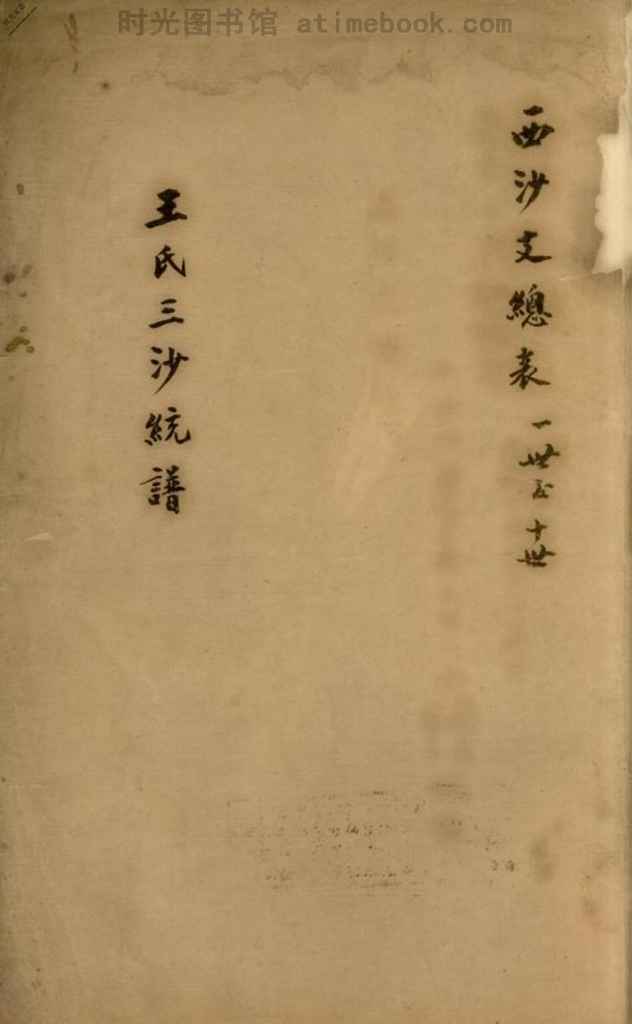 时光图书馆 atimebook.com
西沙支總表 一世至十世
王氏三沙統譜